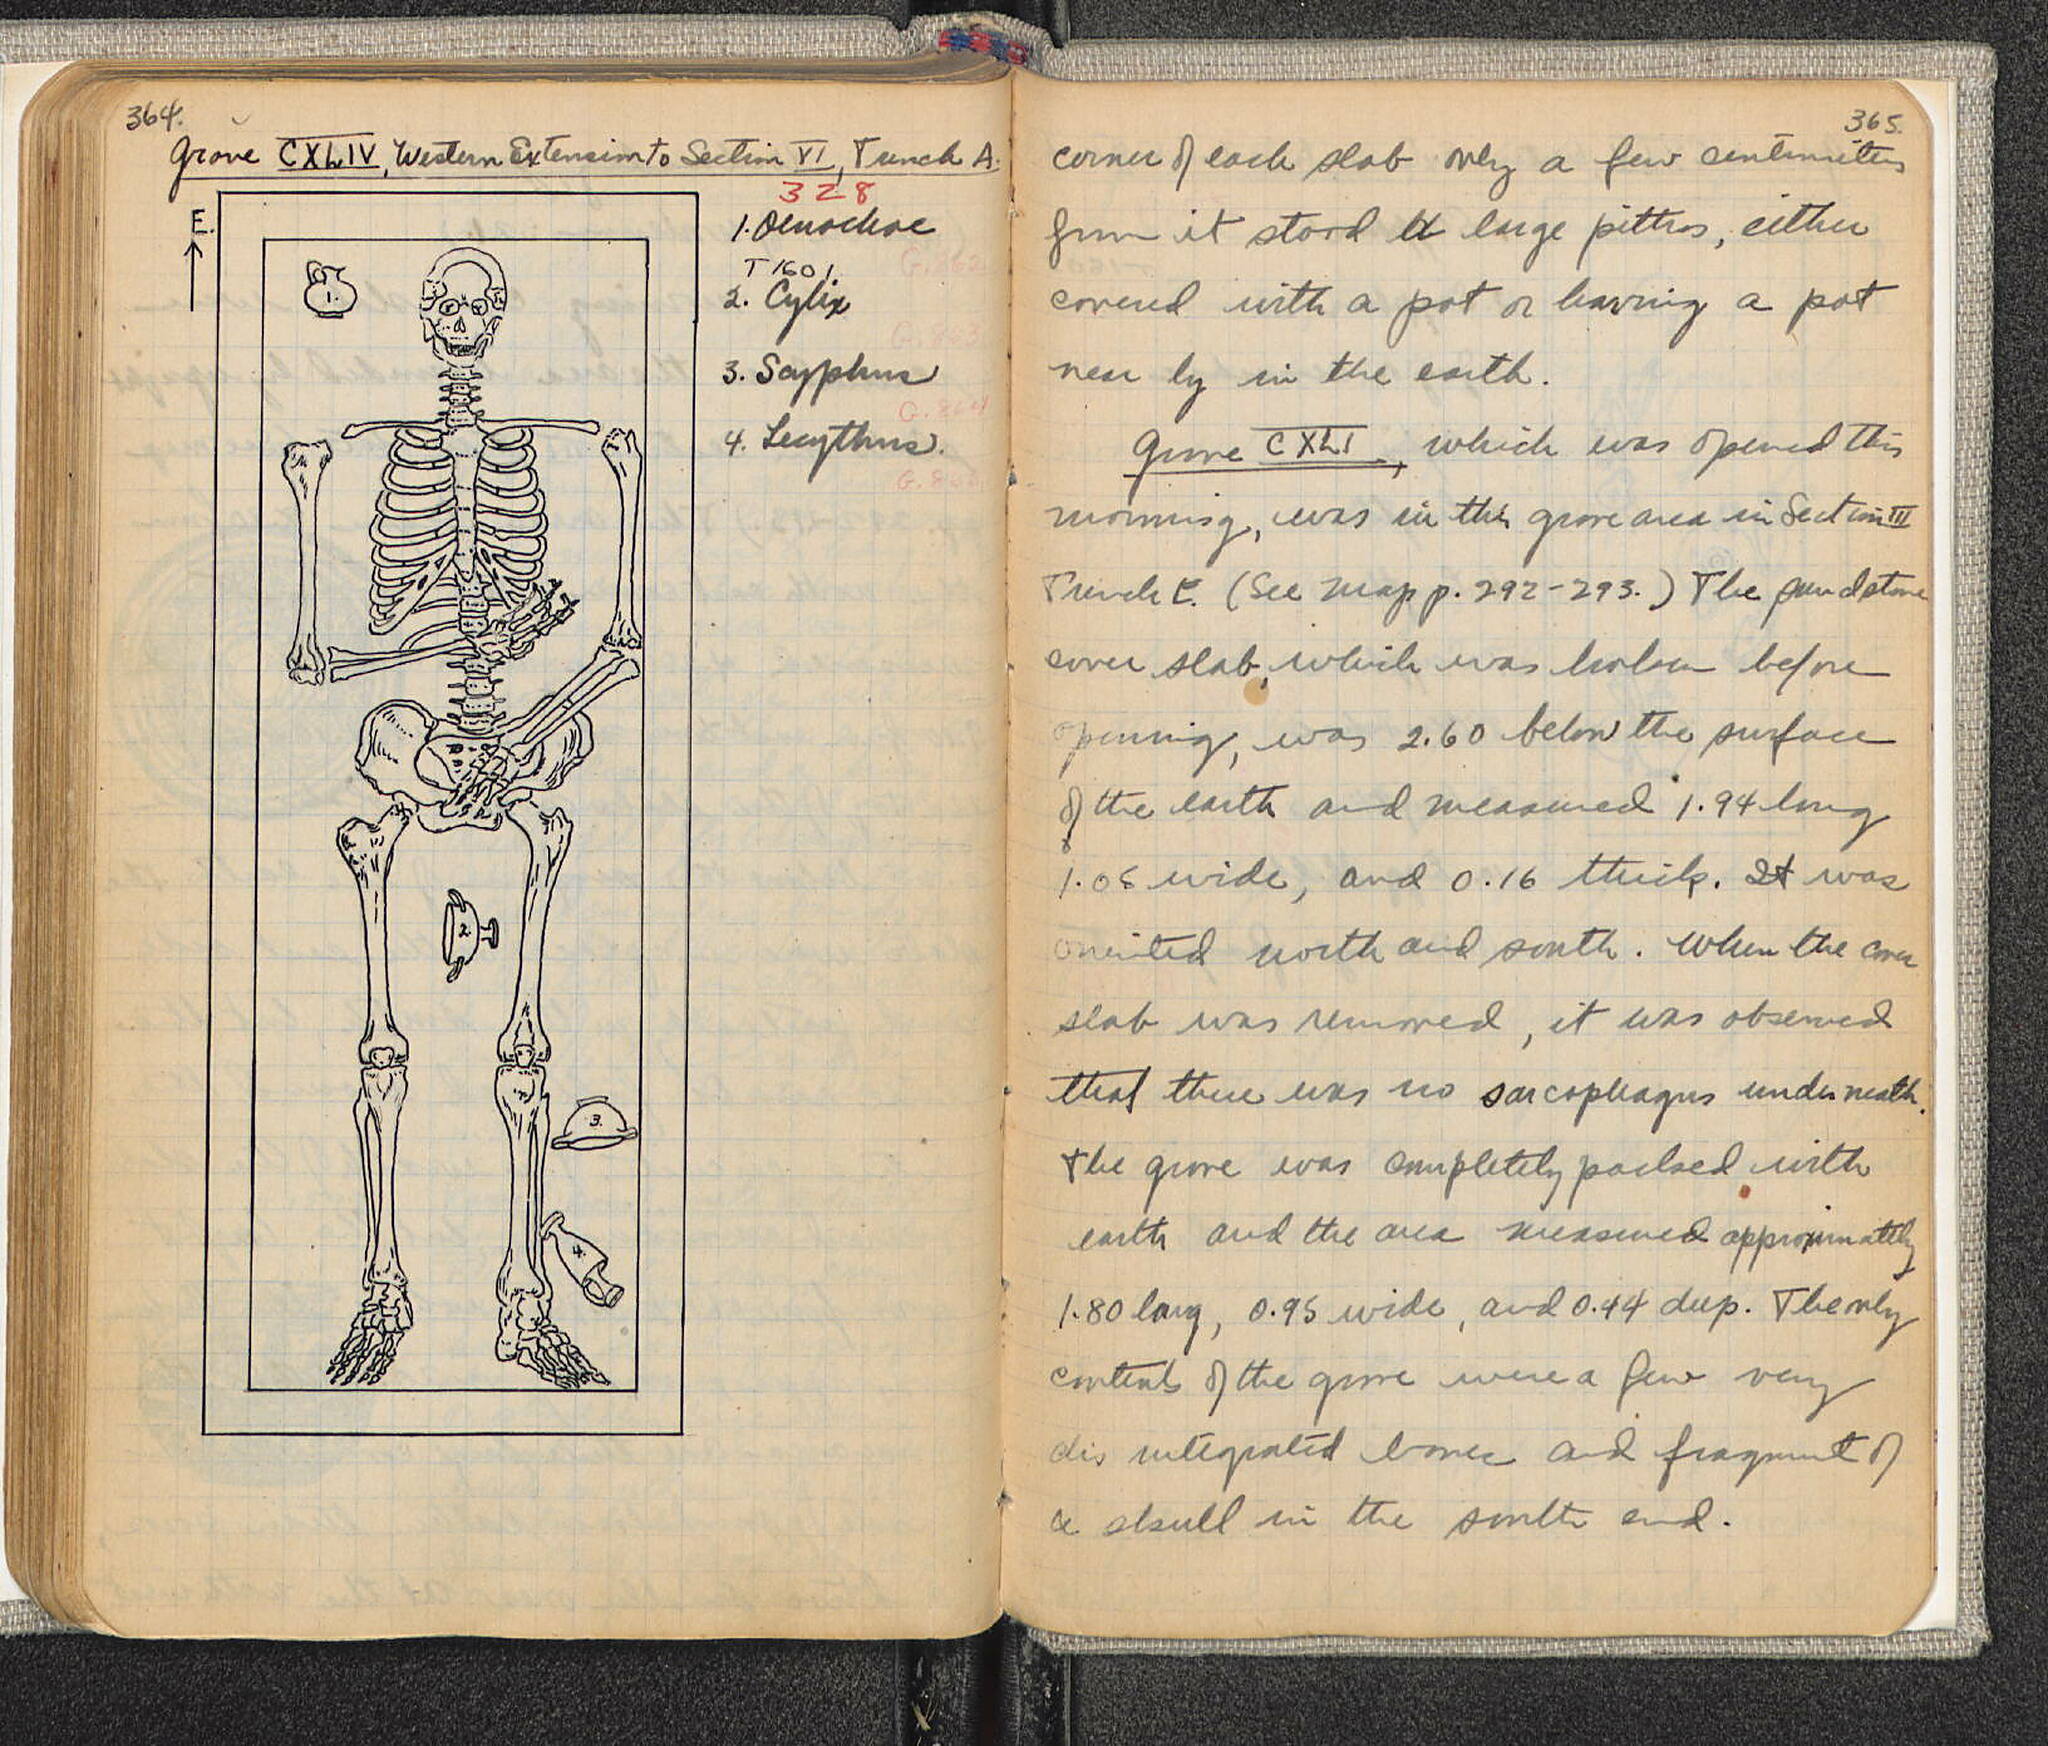 364.
Grave CXLIV, Western Extension to Section VI, Trench A.
328
E.
1. Oenochoe
T 1601.
G.862.
2. Cylix
G.863
3. Scyphus
G.864
4. Lecythus.
G.86
1.
2.
3.
4.
365.
corner of each slab only a few centimeters
from it stood a large pithos, either
covered with a pot or having a pot
near by in the earth.
Grave CXLI, which was opened this
morning, was in the grave area in Section III
Trench E. (See map p. 292-293.) The sandstone
cover slab, which was broken before
opening, was 2.60 below the surface
of the earth and measured 1.94 long
1.08 wide, and 0.16 thick. It was
oriented north and south. When the cover
slab was removed, it was observed
that there was no sarcophagus underneath.
The grave was completely packed with
earth and the area measured approximately
1.80 long, 0.95 wide, and 0.44 deep. The only
contents of the grave were a few very
disintegrated bones and fragment of
a skull in the south end.